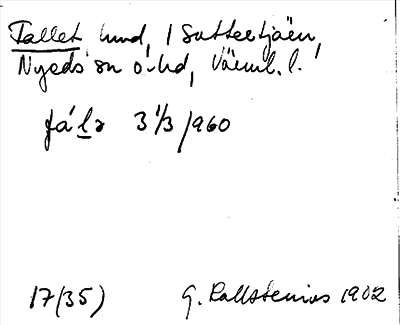 Tallet lund, / Suttertjärn,
Nyeds sn o. hd, Värml. l.
fá'lə 3 1/3 /960
17(35) G. Kallstenius 1902